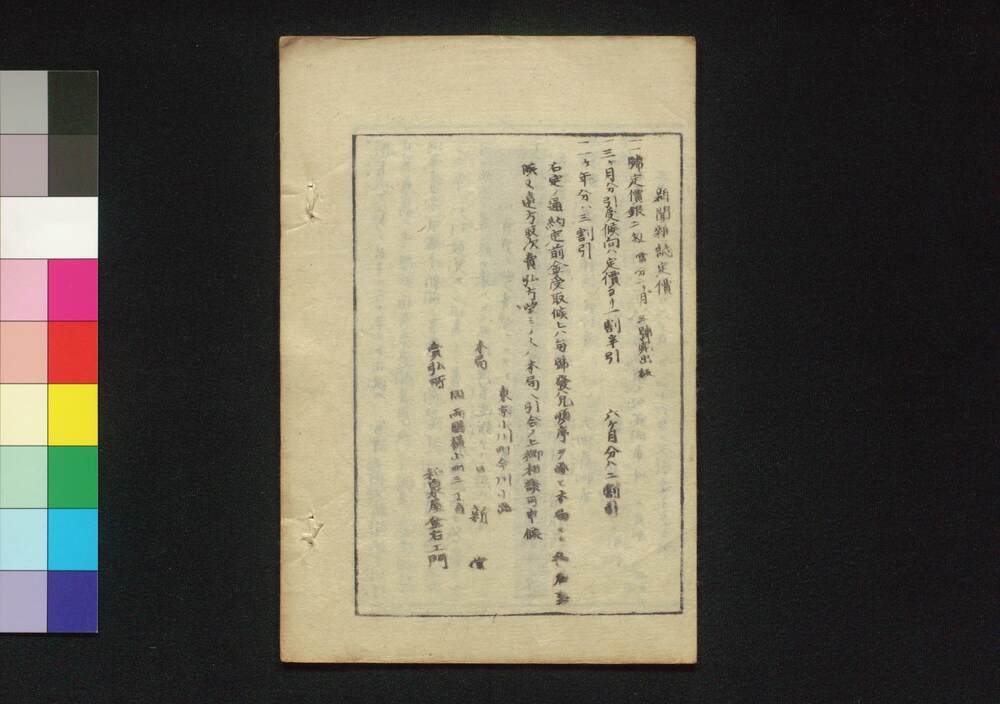 新聞雑誌定價
一一號定價銀二匁 當分一ヶ月ニ 三號宛出板
一三ヶ月分引受候向ハ定價ヨリ一割半引 六ヶ月分ハ二割引
一一ヶ年分ハ三割引
右定ノ通約定前金受取候上ハ毎號發兌順序ヲ逐ヒ本局ヨリ
猶又遠方取次賣弘方望ミノ人ハ本局ヘ引合ノ上御相談可申候
東京小川町今川小路
本局 日新堂
同両國横山町三丁目
賣弘所 和泉屋金右エ門